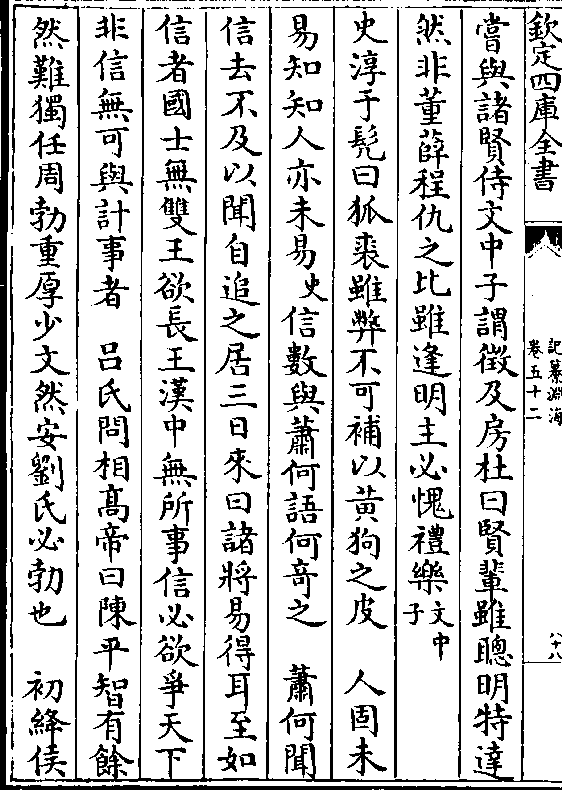 欽定四庫全書
記纂淵海
卷五十二
八十八
嘗與諸賢侍文中子謂徴及房杜曰賢輩雖聰明特達
然非董薛程仇之比雖逢明主必愧禮樂文中子
史淳于髠曰狐裘雖弊不可補以黄狗之皮 人固未
易知知人亦未易史信數與蕭何語何奇之 蕭何聞
信去不及以聞自追之居三日來曰諸將易得耳至如
信者國士無雙王欲長王漢中無所事信必欲爭天下
非信無可與計事者 吕氏問相髙帝曰陳平智有餘
然難獨任周勃重厚少文然安劉氏必勃也 初絳侯